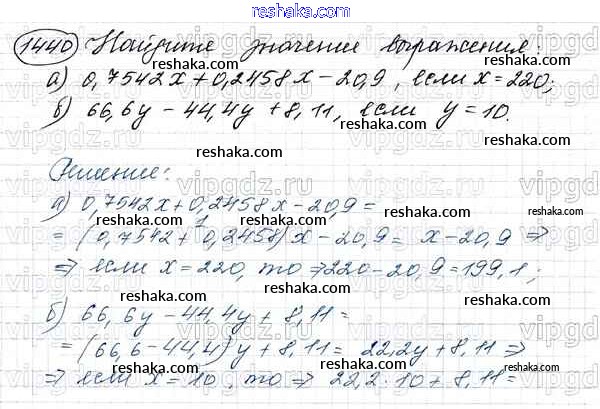 reshaka.com
1440 Найдите значение выражения:
а) 0,7542x + 0,2458x - 20,9, если x = 220;
б) 66,6y - 44,4y + 8,11, если y = 10.
reshaka.com reshaka.com reshaka.com
Решение:
reshaka.com reshaka.com
а) 0,7542x + 0,2458x - 20,9 =
= (0,7542 + 0,2458)x - 20,9 = x - 20,9 ⇒
1
reshaka.com reshaka.com reshaka.com
⇒ если x = 220, то ⇒ 220 - 20,9 = 199,1;
reshaka.com reshaka.com
б) 66,6y - 44,4y + 8,11 =
= (66,6 - 44,4)y + 8,11 = 22,2y + 8,11 ⇒
reshaka.com reshaka.com reshaka.com
⇒ если x = 10, то ⇒ 22,2 · 10 + 8,11 =
reshaka.com reshaka.com